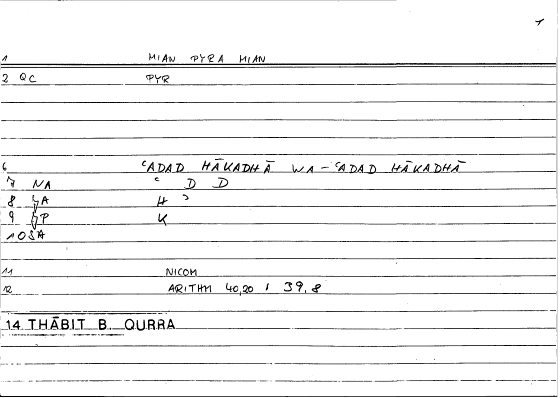 1
1 MIAN PYRA MIAN
2 QC PYR
6 ʿADAD HĀKADHĀ WA-ʿADAD HĀKADHĀ
7 NA ʿ D D
8 A H ʾ
9 P K
10
11 NICOM
12 ARITHM 40,20 / 39,8
14 THĀBIT B. QURRA